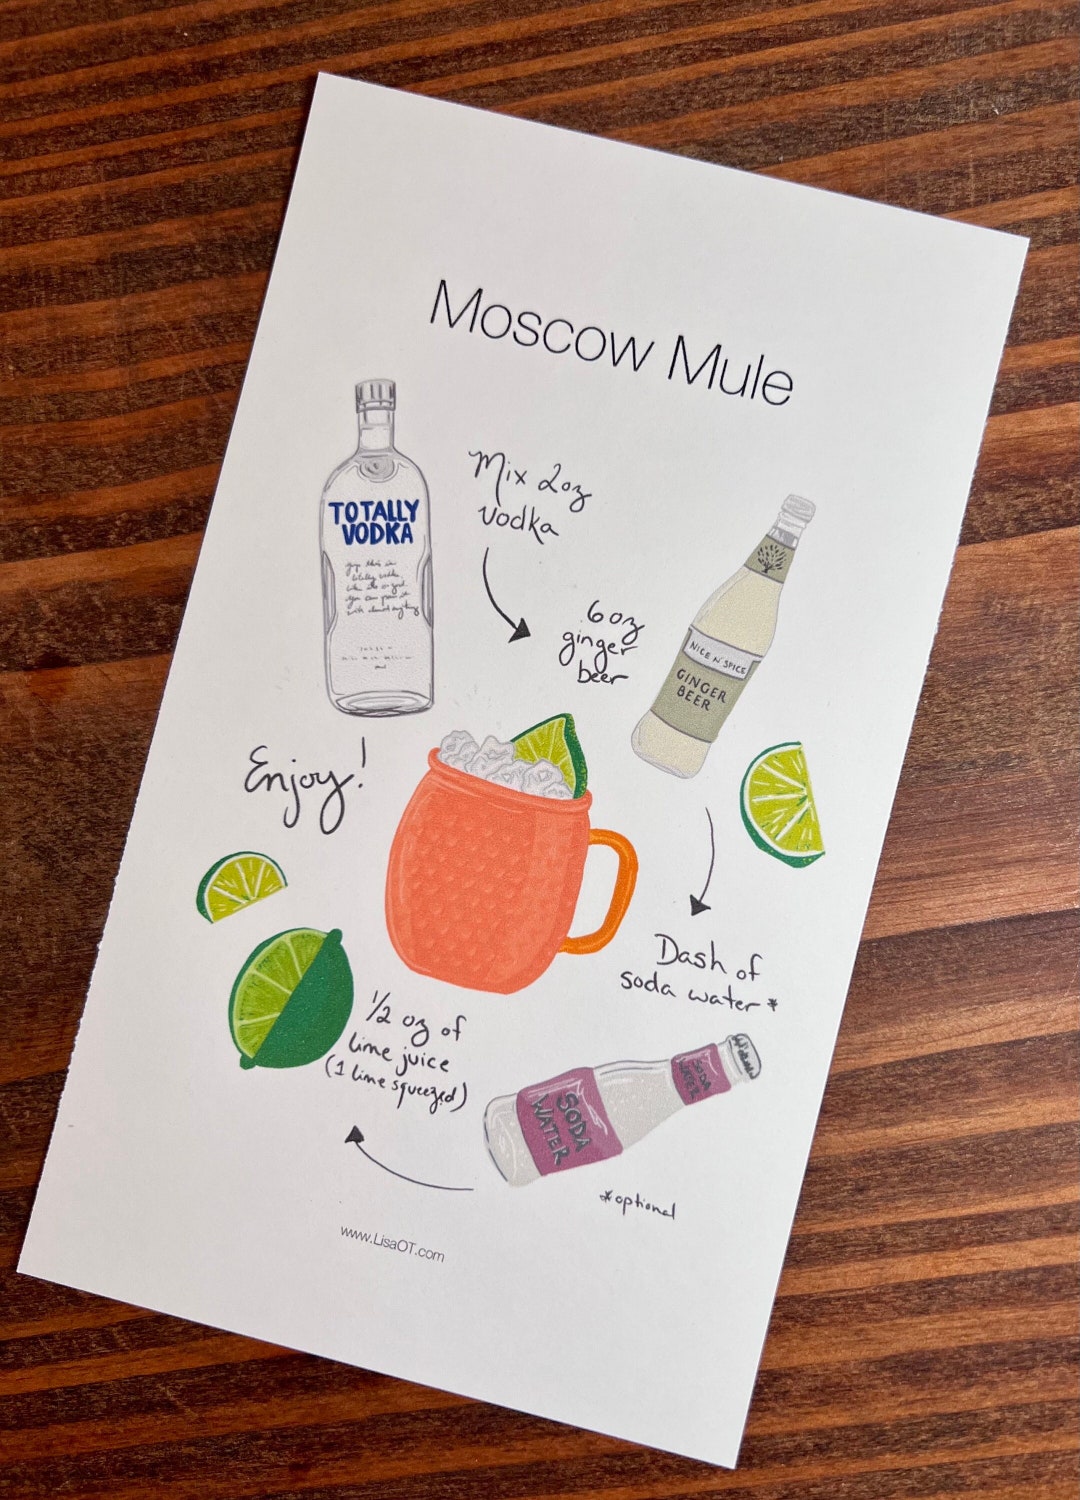 Moscow Mule
TOTALLY
VODKA
Mix 2oz
vodka
6oz
ginger
beer
NICE N' SPICE
GINGER
BEER
Enjoy!
Dash of
soda water*
1/2 oz of
lime juice
(1 lime squeezed)
SODA
WATER
SODA
WATER
*optional
www.LisaOT.com